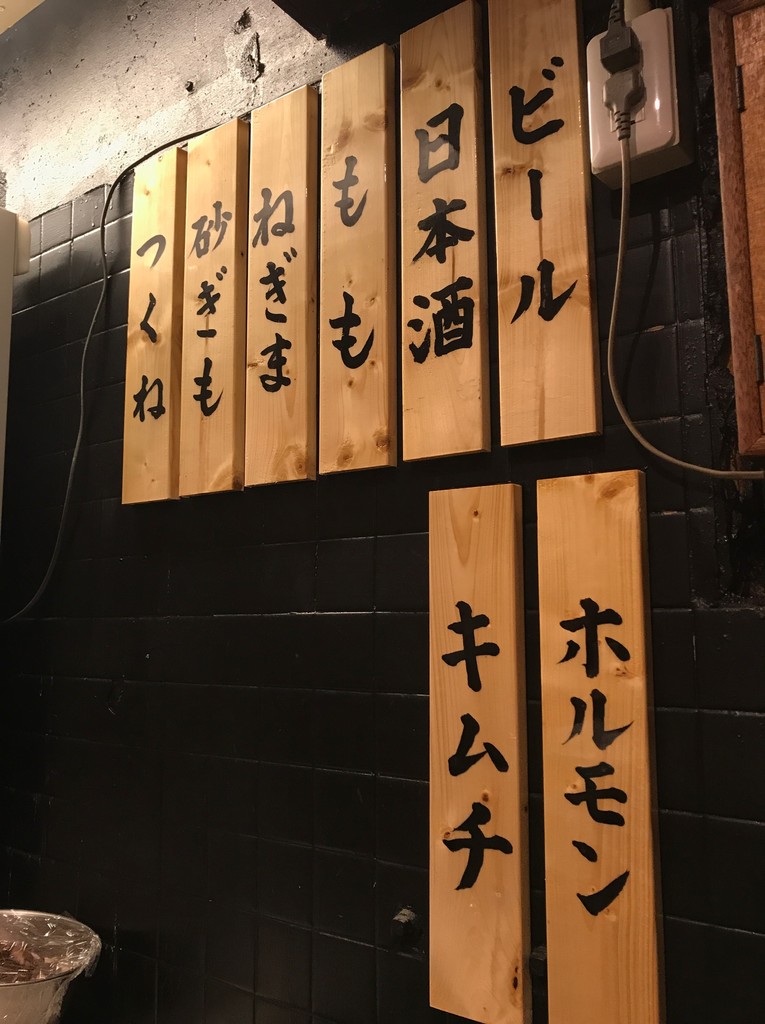 ビール
日本酒
もも
ねぎま
砂ぎも
つくね
ホルモン
キムチ